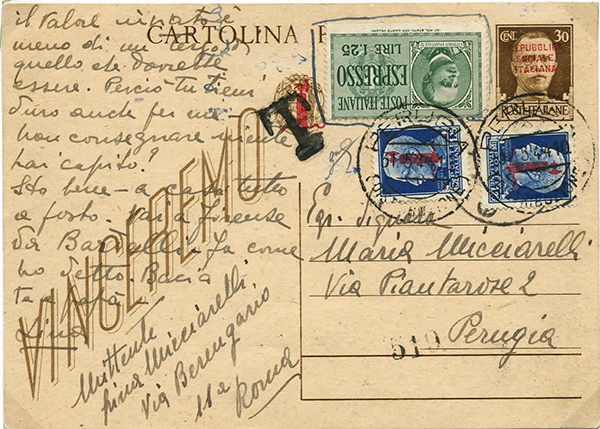 CARTOLINA P
CENT. 30
REPUBBLICA
SOCIALE
ITALIANA
POSTE ITALIANE
POSTE ITALIANE
ESPRESSO
LIRE 1,25
T
VINCEREMO
il valore è
meno di un terzo di
quello che dovrebbe
essere. Perciò tu tieni
duro anche per me –
non consegnare niente
hai capito?
Sto bene – a casa tutto
a posto. Vai a Firenze
da Bardelli. Fa come
ho detto. Bacia
te e papà
Lina
Mittente
Lina Micciarelli
Via Berengario
11a
Roma
Egr. Signora
Maria Micciarelli
Via Piantarose 2
Perugia
519